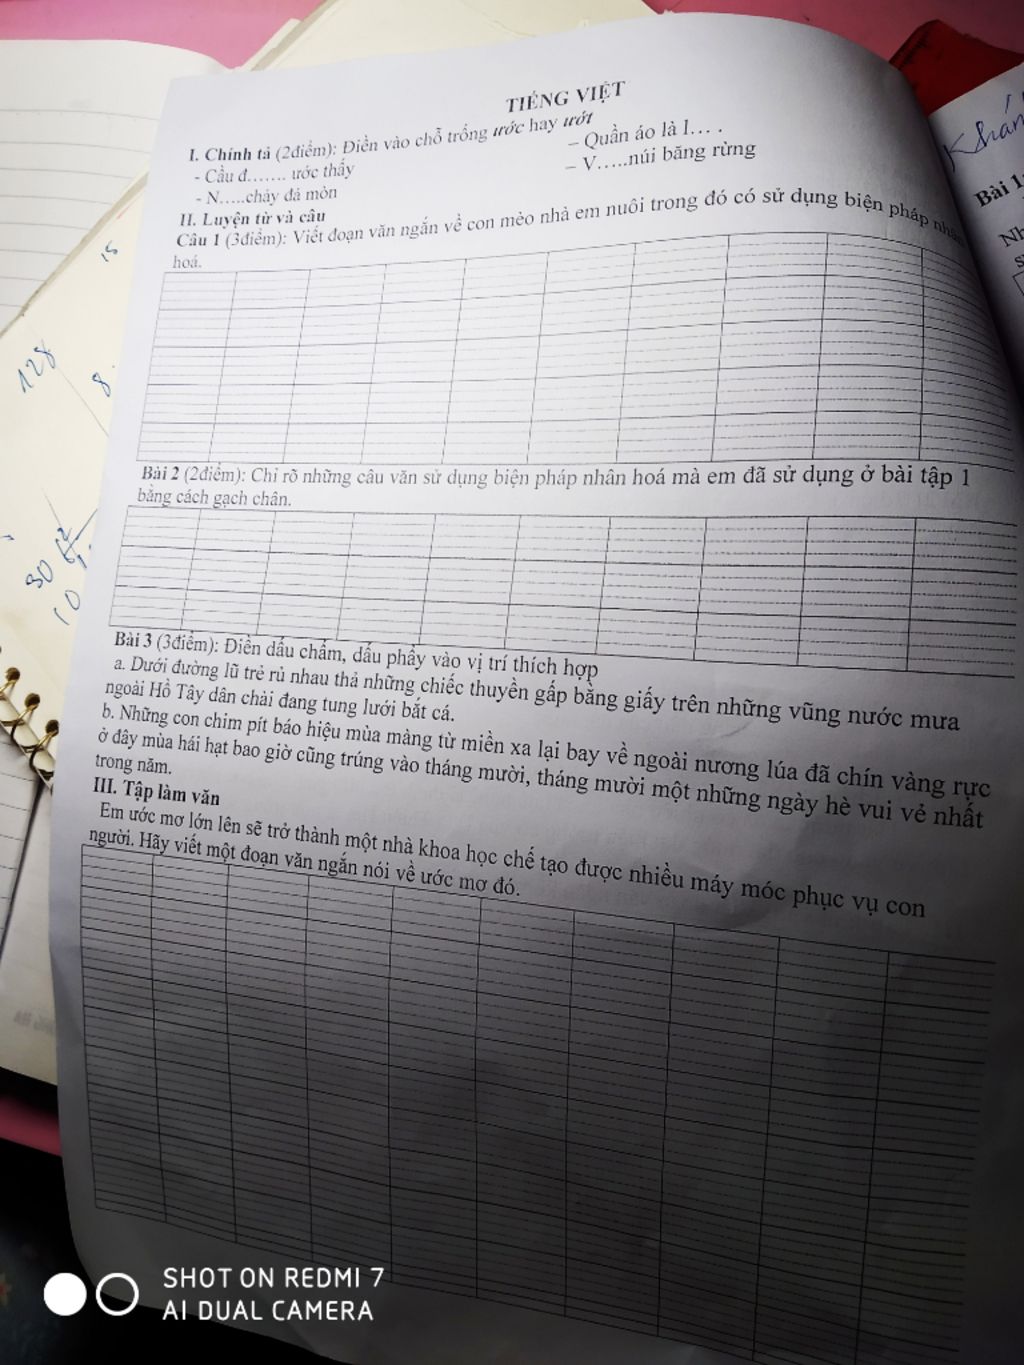 TIẾNG VIỆT
I. Chính tả (2điểm): Điền vào chỗ trống ước hay ướt
- Cầu đ....... ước thấy
– Quần áo là l... .
- N.....chảy đá mòn
– V.....núi băng rừng
II. Luyện từ và câu
Câu 1 (3điểm): Viết đoạn văn ngắn về con mèo nhà em nuôi trong đó có sử dụng biện pháp nhân
hoá.
Bài 2 (2điểm): Chỉ rõ những câu văn sử dụng biện pháp nhân hoá mà em đã sử dụng ở bài tập 1
bằng cách gạch chân.
Bài 3 (3điểm): Điền dấu chấm, dấu phẩy vào vị trí thích hợp
a. Dưới đường lũ trẻ rủ nhau thả những chiếc thuyền gấp bằng giấy trên những vũng nước mưa
ngoài Hồ Tây dân chài đang tung lưới bắt cá.
b. Những con chim pít báo hiệu mùa màng từ miền xa lại bay về ngoài nương lúa đã chín vàng rực
ở đây mùa hái hạt bao giờ cũng trúng vào tháng mười, tháng mười một những ngày hè vui vẻ nhất
trong năm.
III. Tập làm văn
Em ước mơ lớn lên sẽ trở thành một nhà khoa học chế tạo được nhiều máy móc phục vụ con
người. Hãy viết một đoạn văn ngắn nói về ước mơ đó.
15
128
8.
30
10
Bài 1
SHOT ON REDMI 7
AI DUAL CAMERA